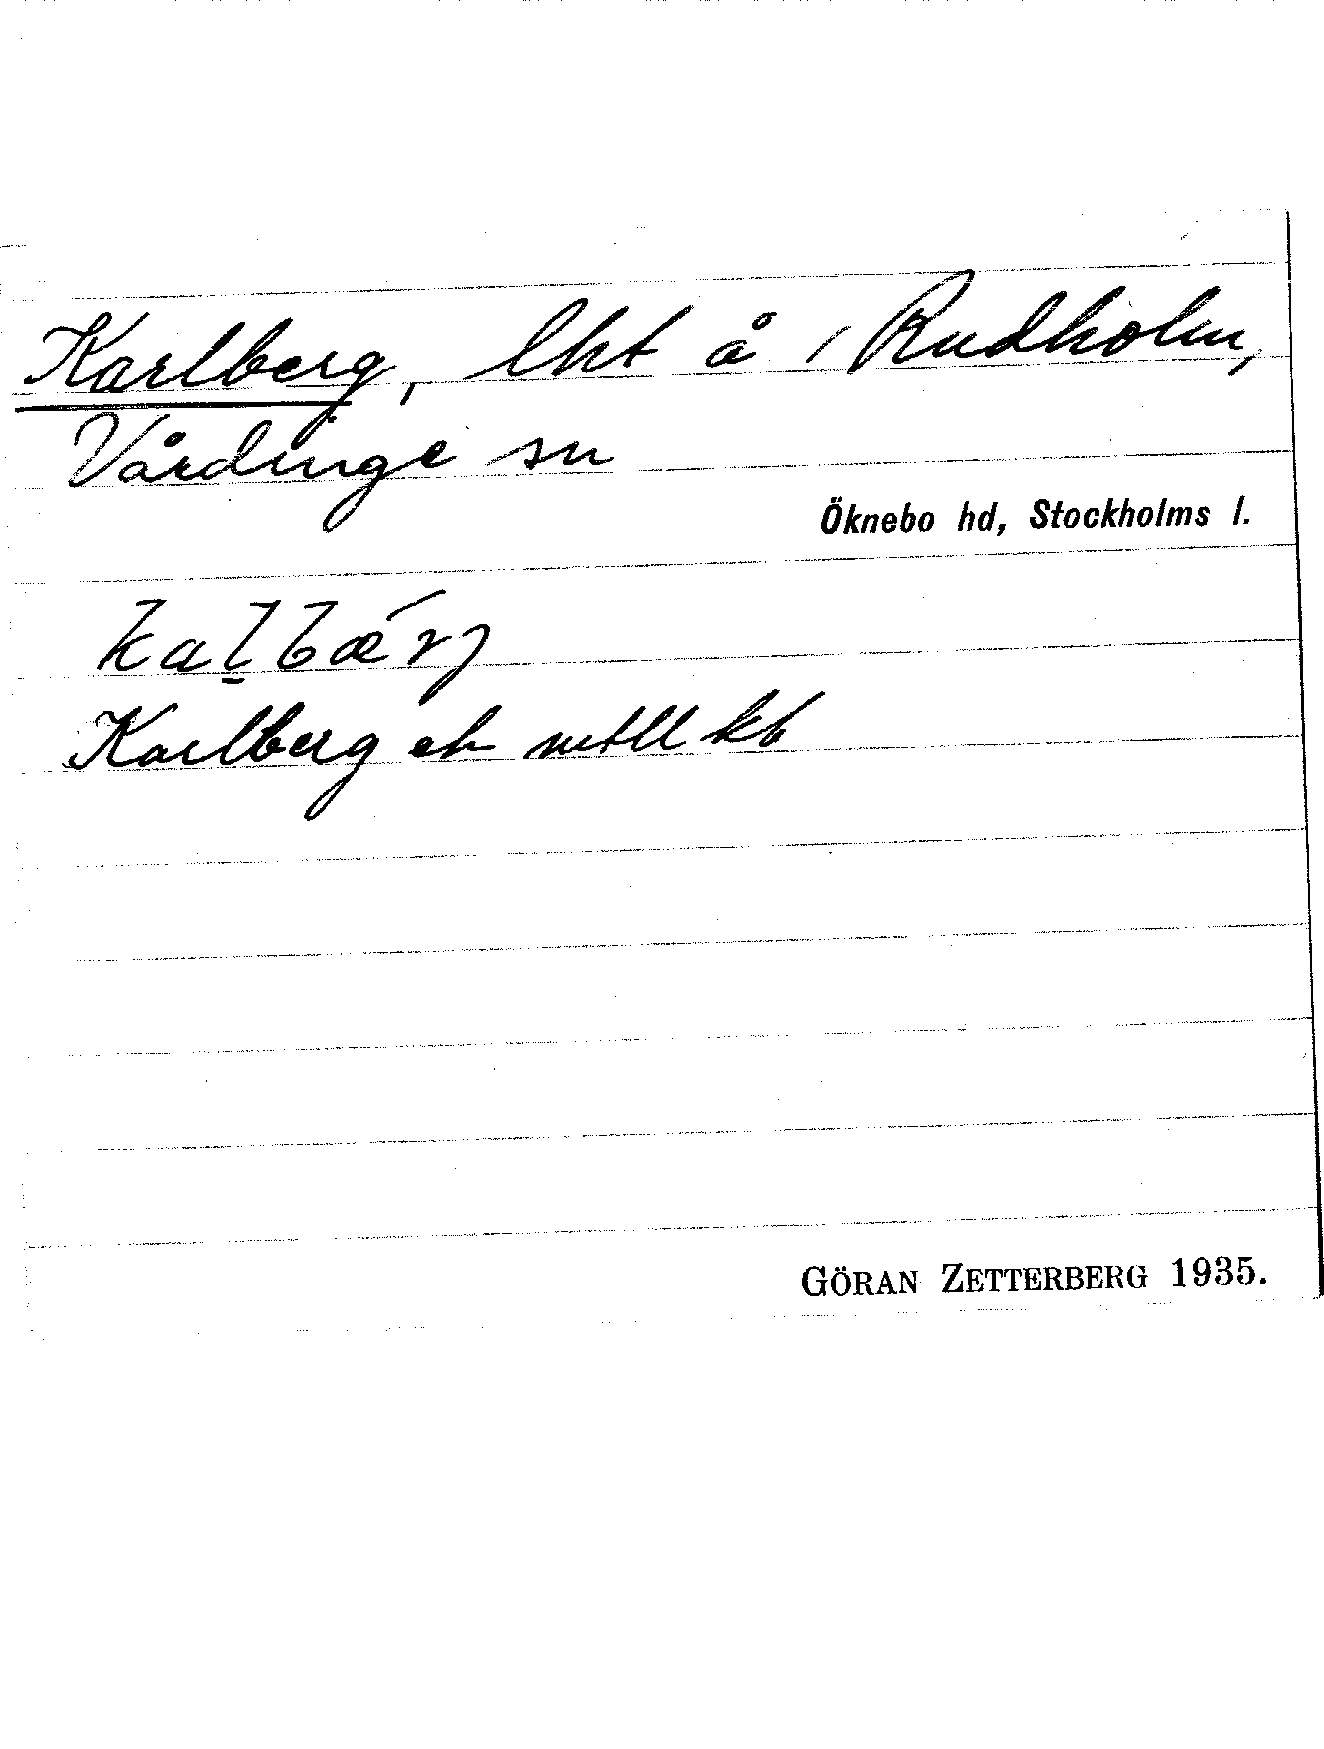 Karlberg, lht å 1 Rudholm,
Vårdinge sn
Öknebo hd, Stockholms l.
kaḻbærj
Karlberg kb
GÖRAN ZETTERBERG 1935.